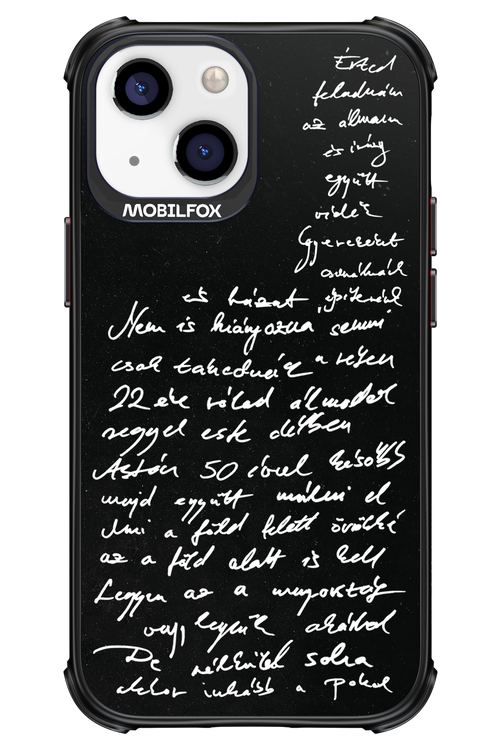 MOBILFOX
Érted
feladnám
az álmaim
és így
együtt
Gyerekeint
csinálnánk
és házat építenénk
Nem is hiányozna semmi
csak takednéz a részen
22 éve rólad álmodok
reggel este délben
Aztán 50 évvel később
majd együtt múlni el
Ami a föld felett örökké
az a föld alatt is kell
Legyen az a mennyország
vagy legyünk akárhol
De nélküled soha
akkor inkább a Pokol